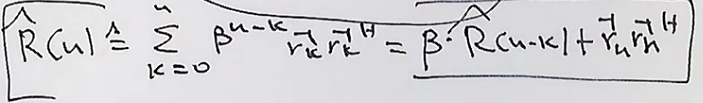 R̂(n) ≜ Σ_{k=0}^{n} β^{n-k} r⃗_k r⃗_k^H = β·R̂(n-k) + r⃗_n r⃗_n^H